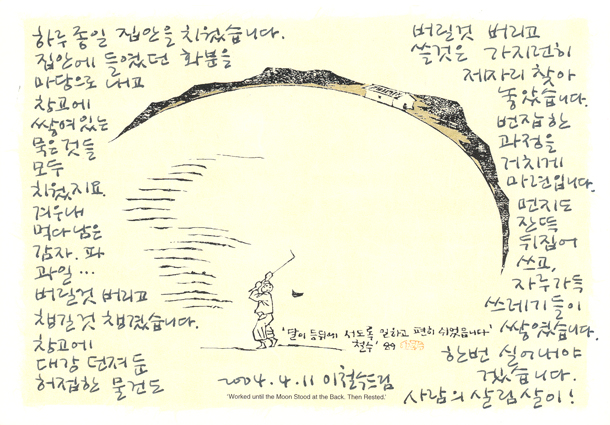 하루종일 집안을 치웠습니다.
집안에 들였던 화분을
마당으로 내고
창고에
쌓여있는
묵은것들
모두
치웠지요.
겨우내
먹다남은
감자. 파
과일 ...
버릴것 버리고
챙길것 챙겼습니다.
창고에
대강 던져둔
허접한 물건도
버릴것 버리고
쓸것은 가지런히
제자리 찾아
놓았습니다.
번잡한
과정을
거치게
마련입니다.
먼지도
잔뜩
뒤집어
쓰고,
자루가득
쓰레기들이
쌓였습니다.
한번 실어내야
겠습니다.
사람의 살림살이!
'달이 등뒤에 서도록 일하고 편히 쉬었읍니다'
철수 '89
2004.4.11 이철수드림
'Worked until the Moon Stood at the Back. Then Rested.'